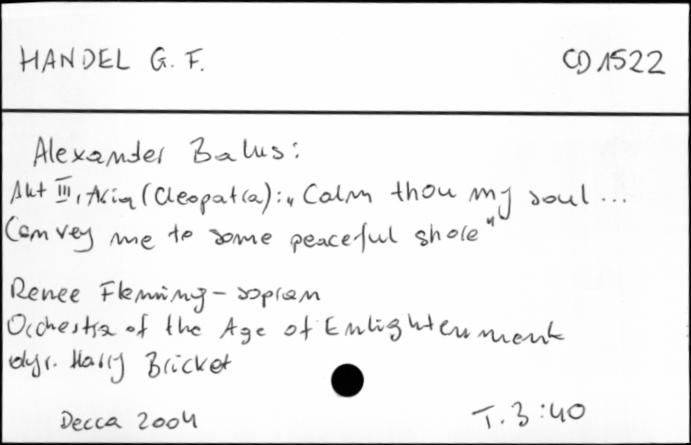 HANDEL G. F.
CD 1522
Alexander Balus:
Akt III, Aria (Cleopatra): „Calm thou my soul ...
Convey me to some peaceful shore"
Renee Fleming - sopran
Orchestra of the Age of Enlightenment
dyr. Harry Bricket
Decca 2004
T. 3:40